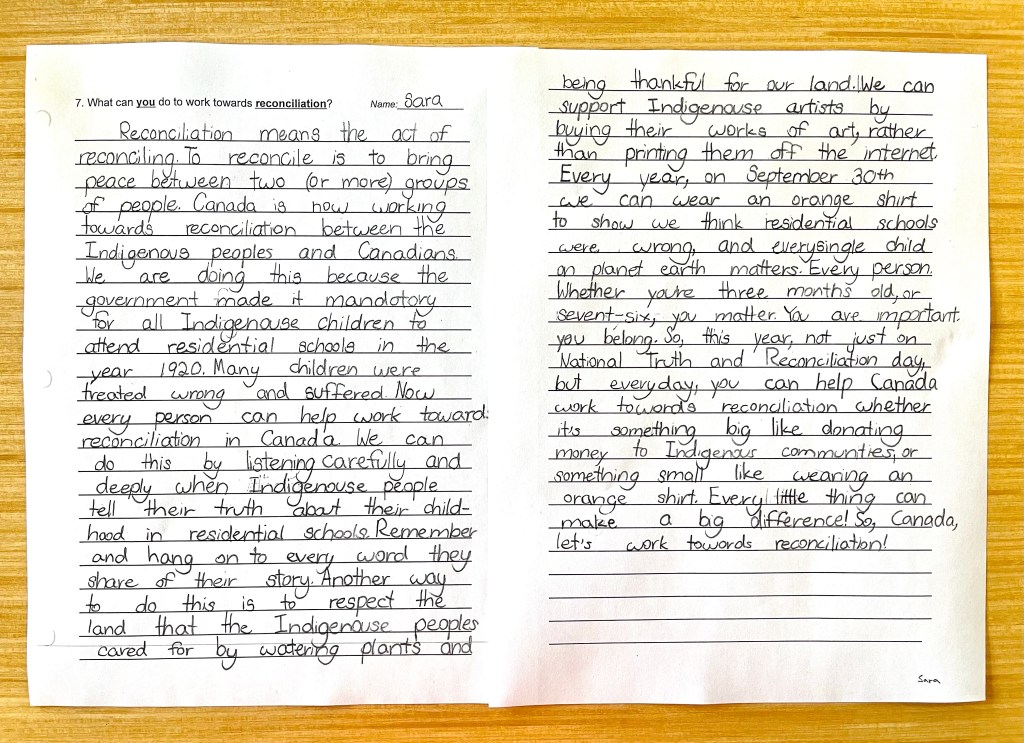 7. What can you do to work towards reconciliation? Name: Sara
Reconciliation means the act of
reconciling. To reconcile is to bring
peace between two (or more) groups
of people. Canada is now working
towards reconciliation between the
Indigenous peoples and Canadians.
We are doing this because the
government made it mandotory
for all Indigenouse children to
attend residential schools in the
year 1920. Many children were
treated wrong and suffered. Now
every person can help work toward
reconciliation in Canada. We can
do this by listening carefully and
deeply when Indigenouse people
tell their truth about their child-
hood in residential schools. Remember
and hang on to every word they
share of their story. Another way
to do this is to respect the
land that the Indigenouse peoples
cared for by watering plants and
being thankful for our land. We can
support Indigenouse artists by
buying their works of art, rather
than printing them off the internet.
Every year, on September 30th
we can wear an orange shirt
to show we think residential schools
were wrong, and everysingle child
on planet earth matters. Every person.
Whether you're three months old, or
sevent-six, you matter. You are important.
you belong. So, this year, not just on
National Truth and Reconciliation day,
but everyday, you can help Canada
work towards reconciliation whether
it's something big like donating
money to Indigenous communties, or
something small like wearing an
orange shirt. Every little thing can
make a big difference! So, Canada,
let's work towards reconciliation!
Sara